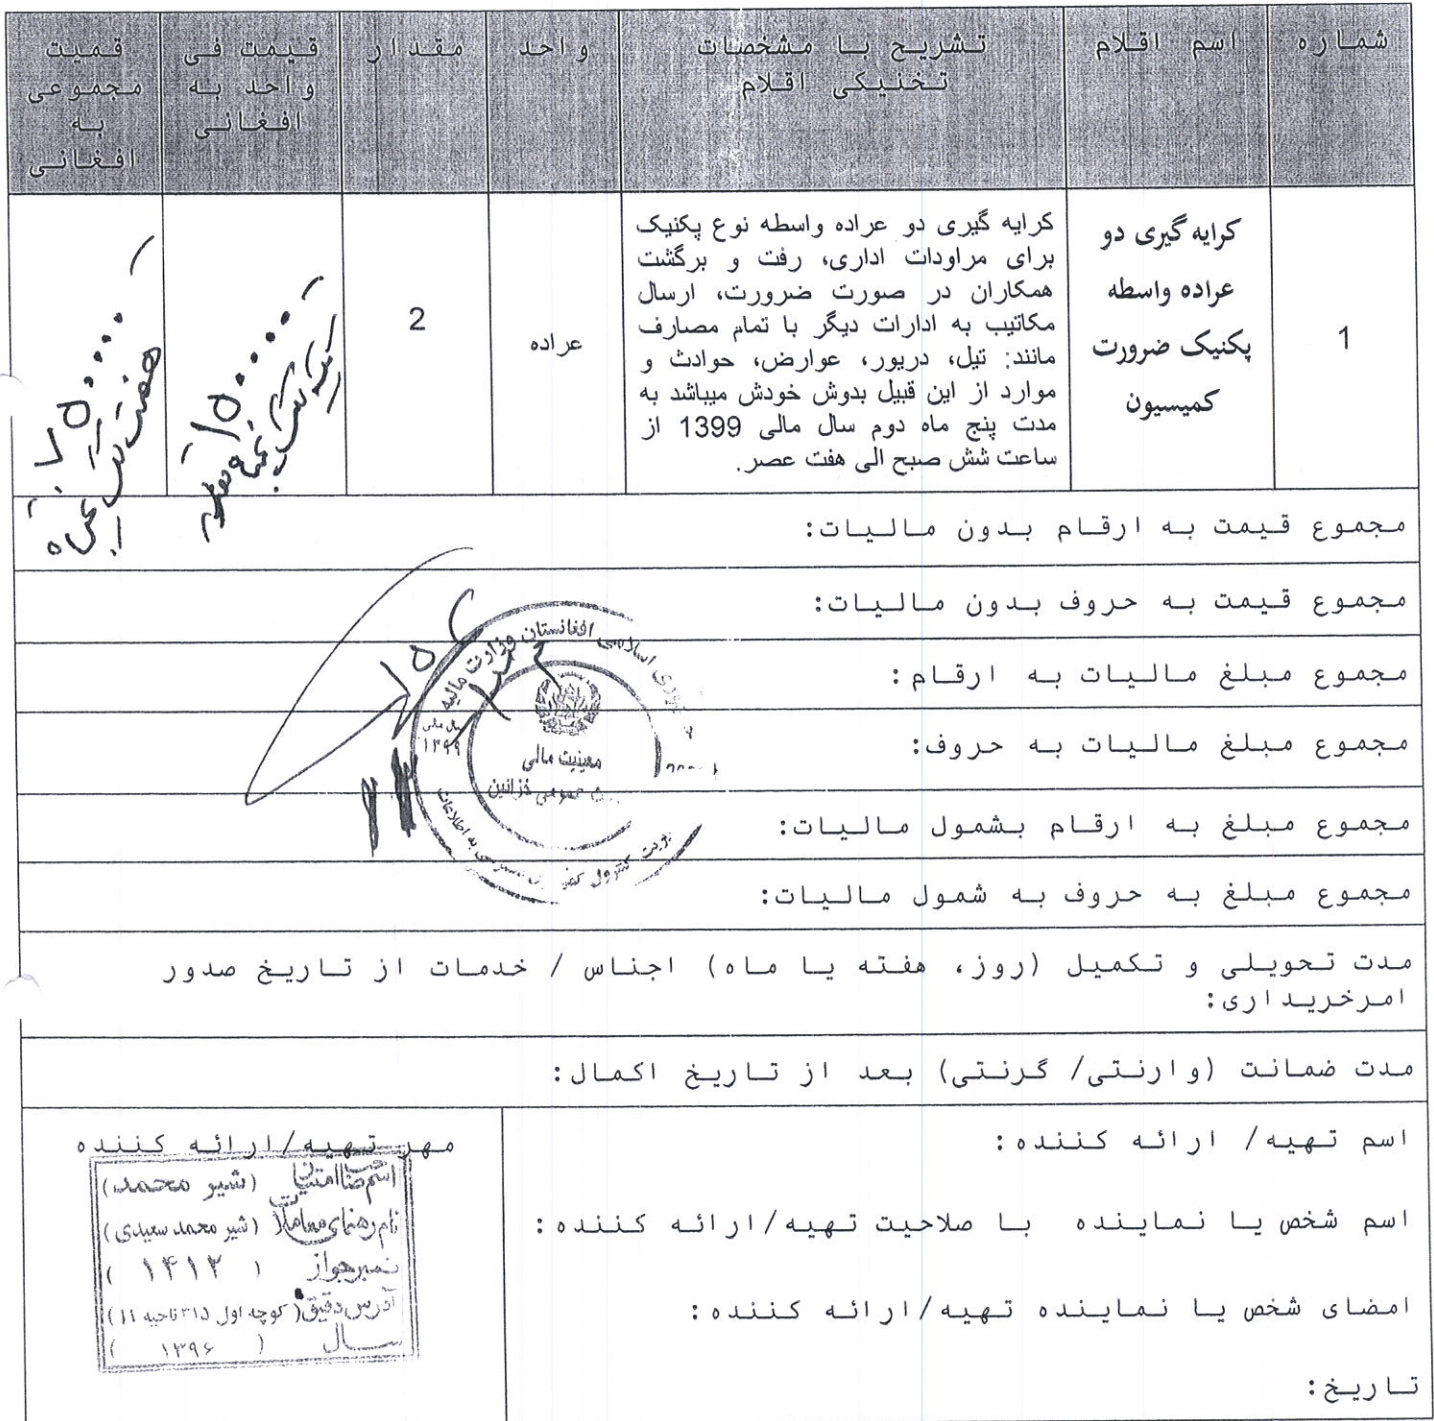 شماره
اسم اقلام
تشریح با مشخصات
تخنیکی اقلام
واحد
مقدار
قیمت فی
واحد به
افغانی
قمیت
مجموعی
به
افغانی
1
کرایه گیری دو
عراده واسطه
پکنیک ضرورت
کمیسیون
کرایه گیری دو عراده واسطه نوع پکنیک
برای مراودات اداری، رفت و برگشت
همکاران در صورت ضرورت، ارسال
مکاتیب به ادارات دیگر با تمام مصارف
مانند: تیل، دریور، عوارض، حوادث و
موارد از این قبیل بدوش خودش میباشد به
مدت پنج ماه دوم سال مالی 1399 از
ساعت شش صبح الی هفت عصر.
عراده
2
مجموع قیمت به ارقام بدون مالیات:
مجموع قیمت به حروف بدون مالیات:
مجموع مبلغ مالیات به ارقام:
مجموع مبلغ مالیات به حروف:
مجموع مبلغ به ارقام بشمول مالیات:
مجموع مبلغ به حروف به شمول مالیات:
افغانستان وزارت مالیه
سال مالی
۱۳۹۹
معینیت مالی
عمومی خزائین
مدت تحویلی و تکمیل (روز، هفته یا ماه) اجناس / خدمات از تاریخ صدور
امرخریداری:
مدت ضمانت (وارنتی/ گرنتی) بعد از تاریخ اکمال:
اسم تهیه/ ارائه کننده:
اسم شخص یا نماینده با صلاحیت تهیه/ارائه کننده:
امضای شخص یا نماینده تهیه/ارائه کننده:
تاریخ:
مهر تهیه/ارائه کننده
اسم صاحب امتیاز (شیر محمد)
نام رهنمای معاملات (شیر محمد سعیدی)
نمبر جواز ( ۱۴۱۲ )
آدرس دقیق ( کوچه اول ۳۱۵ ناحیه ۱۱ )
سال ( ۱۳۹۶ )